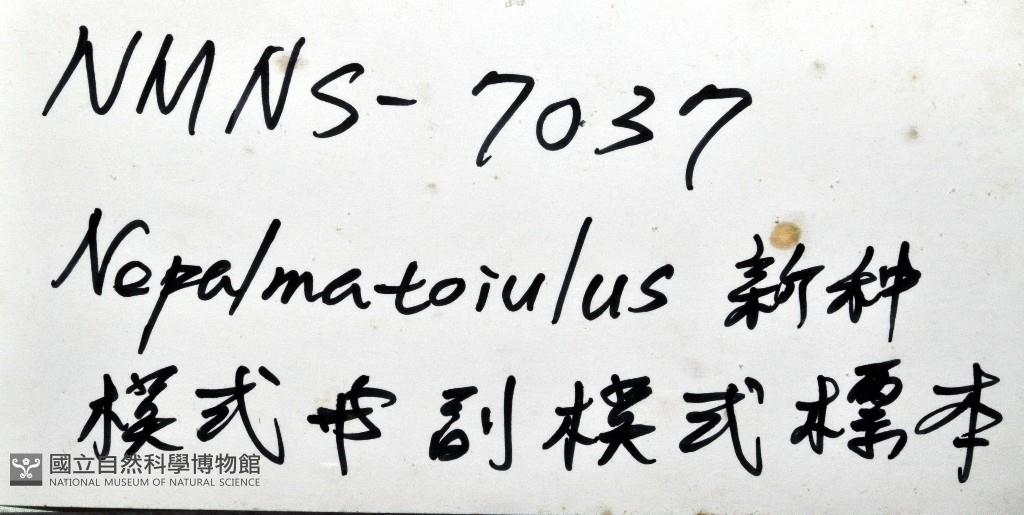 NMNS-7037
Nepalmatoiulus 新种
模式 副模式標本
國立自然科學博物館
NATIONAL MUSEUM OF NATURAL SCIENCE